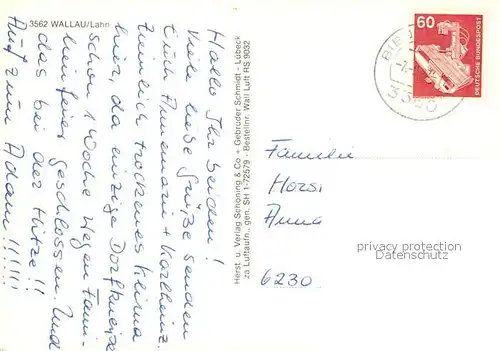 3562 WALLAU/Lahn
Hallo Ihr beiden!
Viele liebe Grüße senden
Euch Annemarie + Karlheinz.
Ziemlich trockenes Klima
hier, da einzige Dorfkneipe
schon 1 Woche wegen Fami-
lienfeier geschlossen. Und
das bei der Hitze!!
Auf zum Adam!!!!!!
Herst. u. Verlag Schöning & Co · Gebrüder Schmidt · Lübeck
zu Luftaufn., gen. SH 1-72579 · Bestellnr. Wall Luft RS 9032
60
DEUTSCHE BUNDESPOST
Familie
Horst
Anna
6230
privacy protection
DELCAMPE.NET